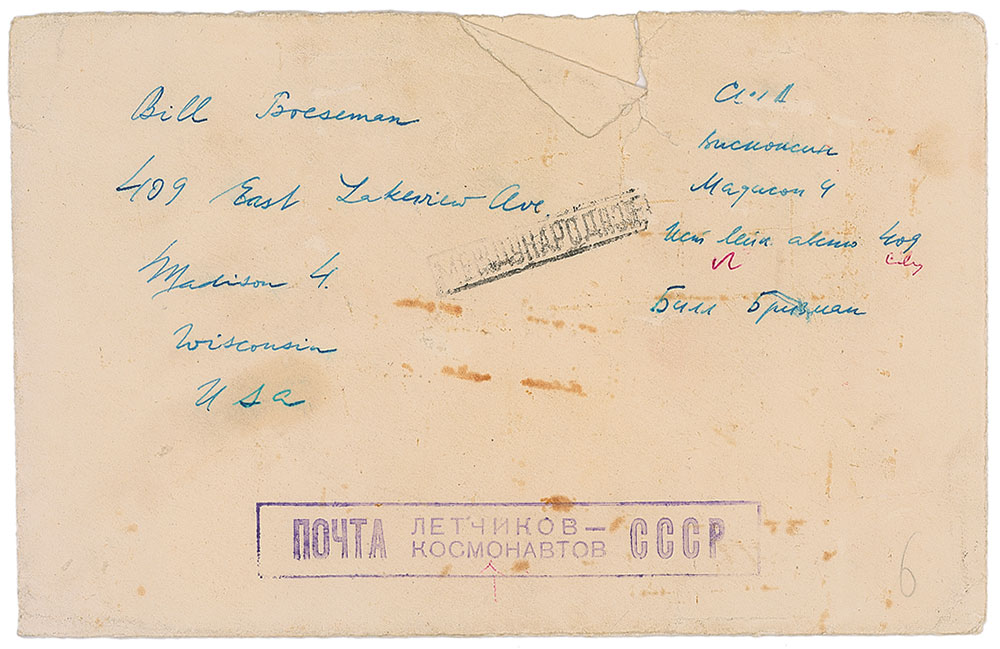 Bill Boeseman
409 East Lakeview Ave
Madison 4.
Wisconsin
USA
США
Висконсин
Мадисон 4
лейк авеню 409
Билл
МЕЖДУНАРОДНОЕ
ПОЧТА ЛЕТЧИКОВ—
КОСМОНАВТОВ СССР
6